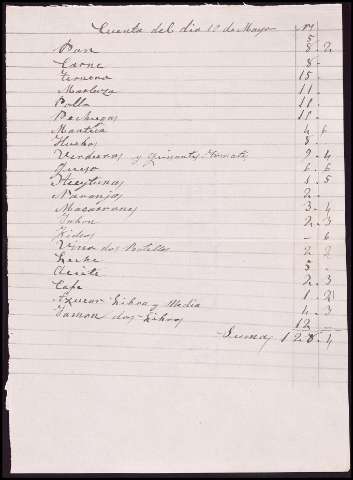 Cuenta del dia 12 de Mayo
5
Pan 8. 2
Carne 8 -
Ternera 15 -
Merluza 11 -
Pollo 11 -
Pechugas 11 -
Manteca 4. 6
Huebos 8 -
Verduras y Tomate 9. 4
Queso 6. 6
Aceytunas 1. 5
Naranjas 2 -
Macarrones 3. 4
Jabon 2. 3
Fideos - 6
Vino dos Botellas 2 2
Leche 3 -
Aceite 2. 3
Cafe 1. 2
Azucar Libra y Media 4. 3
Jamon dos Libras 12 -
Suma 128. 4